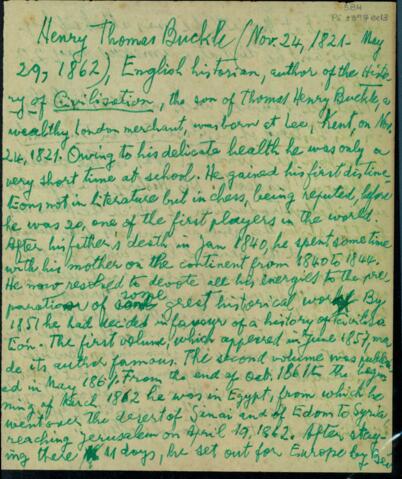 Henry Thomas Buckle (Nov. 24, 1821 - May
29, 1862), English historian, author of the Histo-
ry of Civilisation, the son of Thomas Henry Buckle, a
wealthy London merchant, was born at Lee, Kent, on Nov.
24, 1821. Owing to his delicate health he was only a
very short time at school. He gained his first distinc-
tions not in literature but in chess, being reputed, before
he was 20, one of the first players in the world.
After his father's death in Jan 1840, he spent some time
with his mother on the continent from 1840 to 1844.
He now resolved to devote all his energies to the pre
paration of some great historical work. By
1851 he had decided in favour of a history of civilisa
tion. The first volume, which appeared in June 1857, ma
de its author famous. The second volume was publish
ed in May 1861. From the end of Oct. 1861 to the begin
ning of March 1862 he was in Egypt, from which he
went over the desert of Sinai and of Edom to Syria
reaching Jerusalem on April 19, 1862. After stay-
ing there 11 days, he set out for Europe by Bei